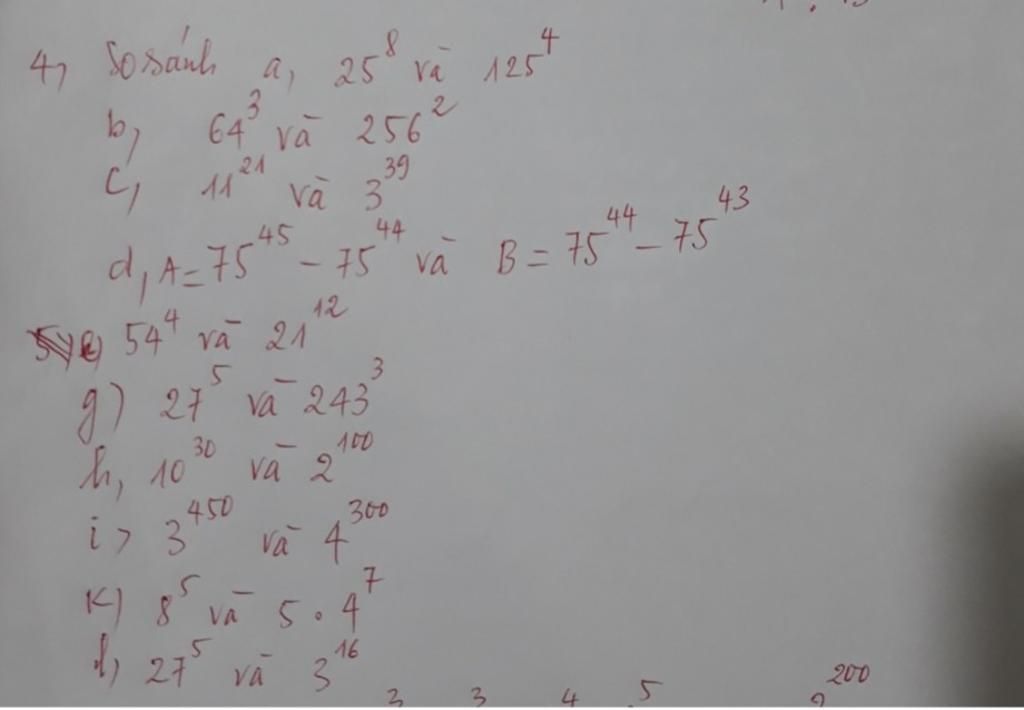 4, So sánh a, 25⁸ và 125⁴
b, 64³ và 256²
c, 11²¹ và 3³⁹
d, A = 75⁴⁵ - 75⁴⁴ và B = 75⁴⁴ - 75⁴³
e) 54⁴ và 21¹²
g) 27⁵ và 243³
h, 10³⁰ và 2¹⁰⁰
i> 3⁴⁵⁰ và 4³⁰⁰
k) 8⁵ và 5 . 4⁷
l, 27⁵ và 3¹⁶